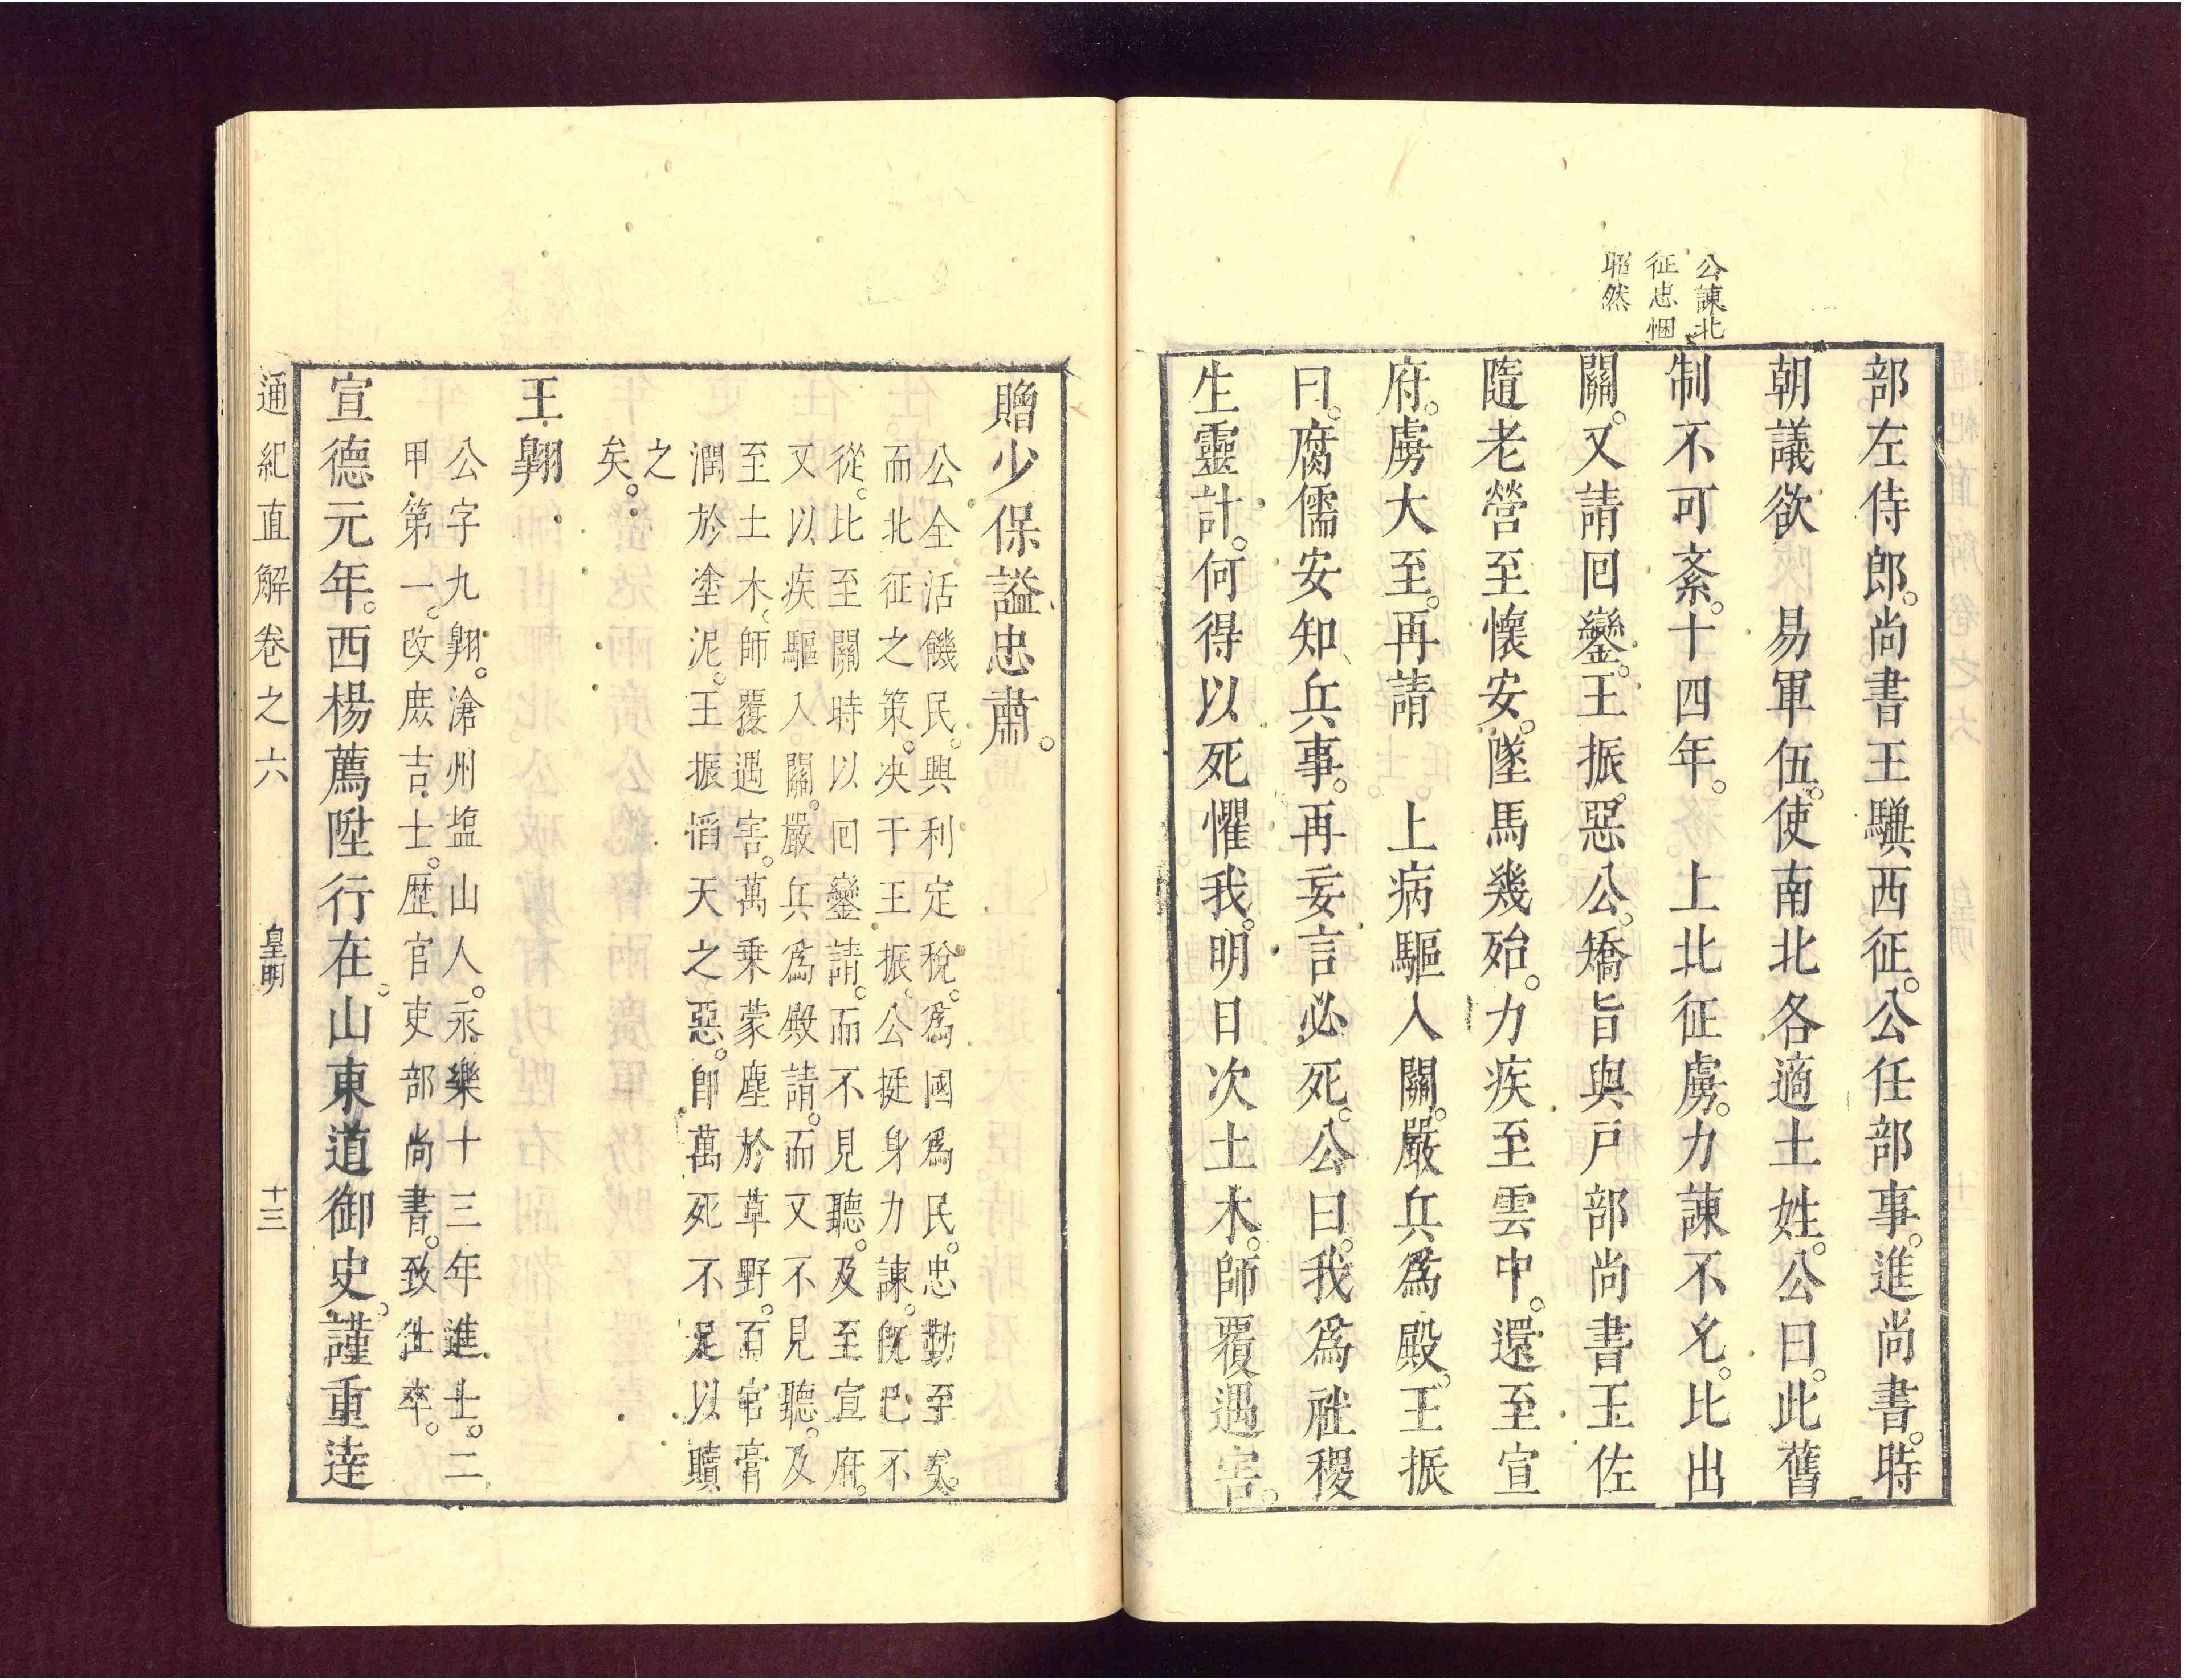 公諫北
征忠悃
昭然
部左侍郎。尚書王驥西征。公任部事。進尚書。時
朝議欲　易軍伍。使南北各適土姓。公曰。此舊
制不可紊。十四年。　上北征虜。力諫不允。比出
關。又請回鑾。王振惡公。矯旨與戶部尚書王佐
隨老營至懷安。墜馬幾殆。力疾至雲中。還至宣
府。虜大至。再請　上病驅入關。嚴兵爲殿。王振
曰。腐儒安知兵事。再妄言必死。公曰。我爲社稷
生靈計。何得以死懼我。明日次土木。師覆遇害。
贈少保謚忠肅。
公全活饑民。興利定稅。爲國爲民。忠勤至矣。
而北征之策。决于王振。公挺身力諫。旣巳不
從。比至關時以回鑾請。而不見聽。及至宣府。
又以疾驅入關。嚴兵爲殿請。而又不見聽。及
至土木。師覆遇害。萬乗蒙塵於草野。百官膏
潤於塗泥。王振慆天之惡。卽萬死不足以贖
之
矣。
王翱
公字九翱。滄州塩山人。永樂十三年進士。二
甲第一。改庶吉士。歴官吏部尚書。致仕卒。
宣德元年。西楊薦陞行在。山東道御史。謹重逹
通紀直解卷之六　皇明　十三